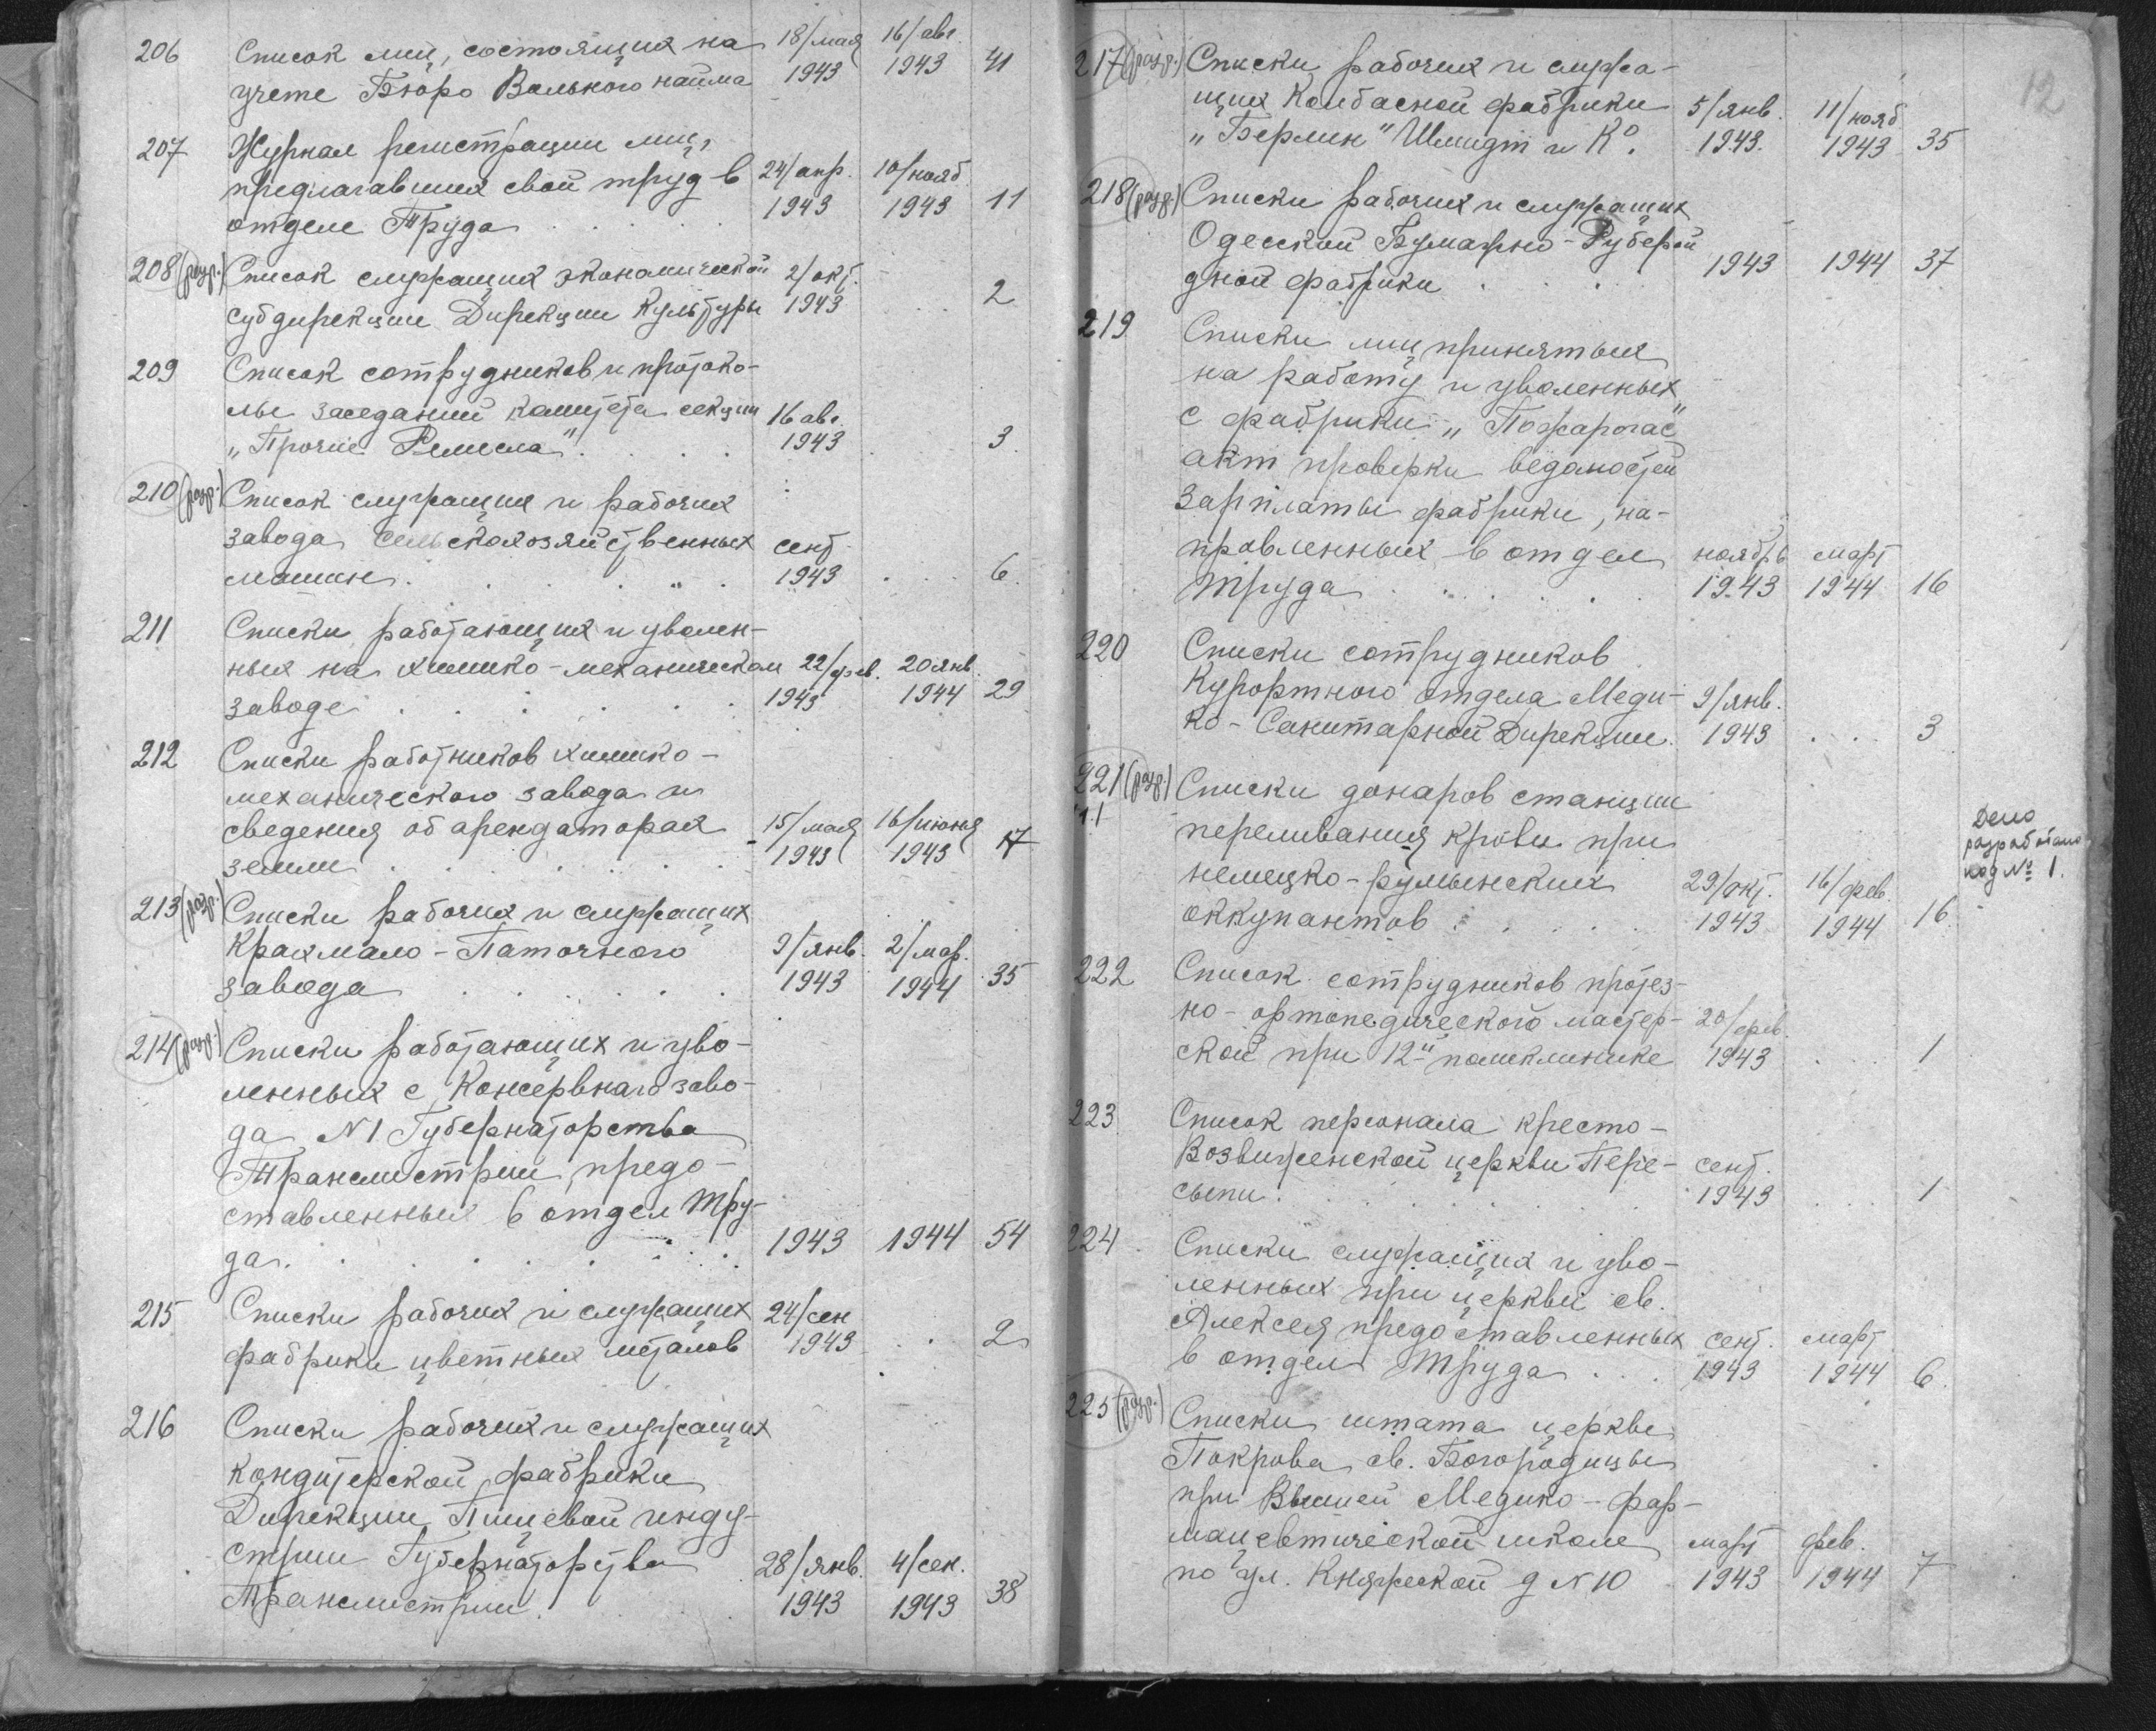 206 Список лиц, состоящих на 18/мая 16/авг.
учете Бюро Вольного найма 1943 1943 41
207 Журнал регистрации лиц,
предлагавших свой труд в 24/апр. 10/нояб.
отделе Труда 1943 1943 11
208 (разр.) Список служащих экономической 2/окт.
субдирекции Дирекции Культуры 1943 2
209 Список сотрудников и протоко-
лы заседаний комитета секции 16 авг.
„Прочие Ремесла" 1943 3
210 (разр.) Список служащих и рабочих
завода сельскохозяйственных сент.
машин 1943 6
211 Списки работающих и уволен-
ных на химико-механическом 22/фев. 20 янв.
заводе 1943 1944 29
212 Списки работников химико-
механического завода и
сведения об арендаторах 15/мая 16/июня
земли 1943 1943 17
213 (разр.) Списки рабочих и служащих
Крахмало-Паточного 9/янв. 2/мар.
завода 1943 1944 35
214 (разр.) Списки работающих и уво-
ленных с Консервного заво-
да N1 Губернаторства
Транснистрии, предо-
ставленных в отдел Тру-
да. 1943 1944 54
215 Списки рабочих и служащих 24/сен
фабрики цветных металов 1943 2
216 Списки рабочих и служащих
кондитерской фабрики
Дирекции Пищевой инду-
стрии Губернаторства 28/янв. 4/сен.
Транснистрии. 1943 1943 38
12
217 (разр.) Списки рабочих и служа-
щих Колбасной фабрики 5/янв. 11/нояб
„Берлин" Шмидт и К⁰. 1943. 1943 35
218 (разр.) Списки рабочих и служащих
Одесской Бумажно-Руберои
дной фабрики 1943 1944 37
219 Списки лиц принятых
на работу и уволенных
с фабрики „Пожарогас"
акт проверки ведомостей
зарплаты фабрики, на-
правленных в отдел ноябрь март
Труда 1943 1944 16
220 Списки сотрудников
Курортного отдела Меди- 9/янв.
ко-Санитарной Дирекции. 1943 3
221 (разр.) Списки доноров станции
переливания крови при
немецко-румынских 29/окт. 16/фев.
оккупантов 1943 1944 16
Дело
разработано
код № 1.
222 Список сотрудников протез-
но-ортопедического мастер- 20/фев.
ской при 12й поликлинике 1943 1
223 Список персонала Кресто-
Воздвиженской церкви Пере- сент.
сыпи. 1943 1
224 Списки служащих и уво-
ленных при церкви св.
Алексея предоставленных сент. март
в отдел Труда 1943 1944 6
225 (разр.) Списки штата церкви
Покрова св. Богородицы
при Высшей Медико-фар-
мацевтической школе март фев.
по ул. Княжеской д N10 1943 1944 7